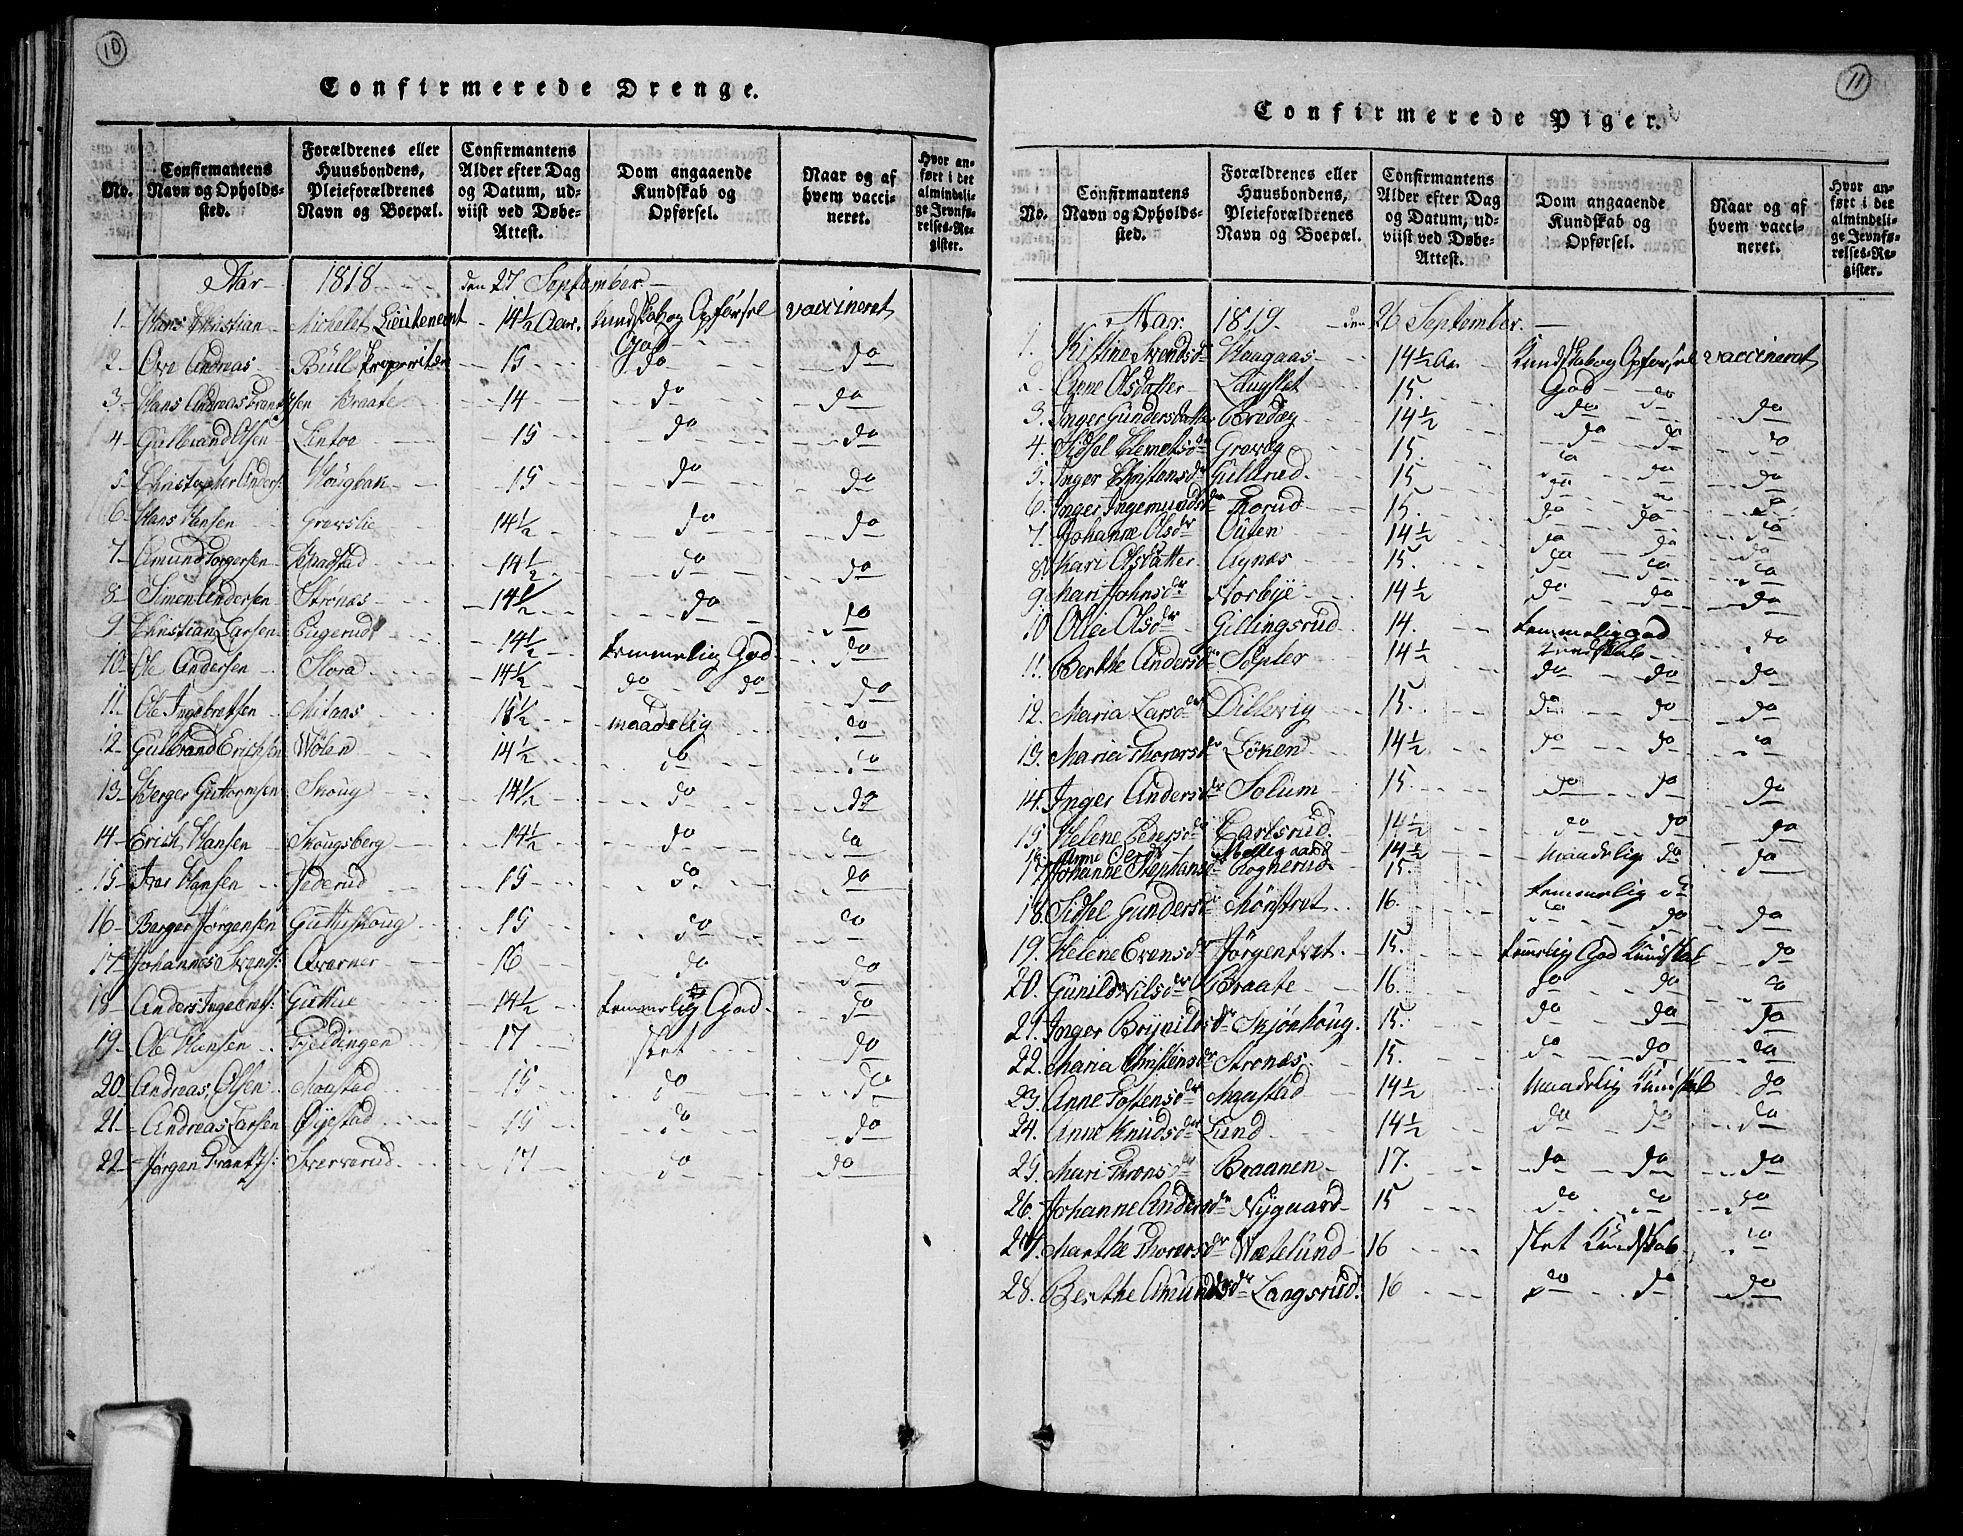 10
Confirmerede Drenge.
No. | Confirmantens Navn og Opholds-sted. | Forældrenes eller Huusbondens, Pleieforældrenes Navn og Boepæl. | Confirmantens Alder efter Dag og Datum, ud-viist ved Døbe-Attest. | Dom angaaende Kundskab og Opførsel. | Naar og af hvem vacci-neret. | Hvor an-ført i det almindeli-ge Jevnfø-relses-Re-gister.
Aar 1818 den 27 September
1 Hans Christian Michelet Lieutenent 14½ Aar. Kundskab og Opførsel God vaccineret
2 Ove Andreas Büll Proprit 15 do do
3 Hans Andreas Frantzsen Braate 14 do do
4 Gulbrand Olsen Lintoe 15 do do
5 Christopher Anders: Høigbak 15 do do
6 Hans Hansen Grevslie 14½ do do
7 Amund Torgersen Kradstad 14½ do do
8 Simen Andersen Strønæs 14½ do do
9 Christian Larsen Eugerud 14½ temmelig God do
10 Ole Andersen Flora 14½ do do do
11 Ole Ingebretsen Mitaas 15½ maadelig do
12 Gulbrand Erichsen Wølen 14½ do do
13 Berger Guttormsen Skoug 14½ do do
14 Erich Hansen Skougsberg 14½ do do
15 Iver Hansen Jederud 15 do do
16 Berger Jørgensen Guttuskoug 15 do do
17 Johannes Svends: Qverner 16 do do
18 Anders Ingebrets: Guttue 14½ temmelig God do
19 Ole Hansen Fjeldingen 17 slet do
20 Andreas Olsen Mogstad 15 do do
21 Andreas Larsen Øyestad 15 do do
22 Jørgen Frantzs: Sververud 17 do do
11
Confirmerede Piger.
No. | Confirmantens Navn og Opholds-sted. | Forældrenes eller Huusbondens, Pleieforældrenes Navn og Boepæl. | Confirmantens Alder efter Dag og Datum, ud-viist ved Døbe-Attest. | Dom angaaende Kundskab og Opførsel. | Naar og af hvem vacci-neret. | Hvor an-ført i det almindeli-ge Jevnfø-relses-Re-gister.
Aar 1819. den 26 September.
1. Kistine Svendsdr Haugaas 14½ Aar Kundskab og Opførsel God vaccineret
2 Anne Olsdatter Langslet 15. do do
3. Inger Gundersdatter Brødeg 14½ do do do
4. Sidsel Klemetsdr Grøvøg 15. do do do
5. Inger Christensdr Gulbrud 15 do do
6. Inger Ingemundsdr Torud 15. do do
7. Johanne Olsdr Outen 14½ do do do
8 Kari Olsdatter Aynæs 15. do do do
9 Mari Johnsdr Norbye 14½ do do do
10 Olia Olsdr Gillingsrud 14. temmelig god Kundskab do
11. Berthe Andersdr Sopler 14½ do do do
12. Maria Larsdr Dillevig 15. do do do
13. Maria Thorersdr Løken 14½ do do do
14. Inger Andersdr Solum 15. do do do
15 Helene Pedersdr Carlsrud 14½ do do do
16 Anne Mellegaard 14½ Maadelig do do
17 Johanne Stephansdr Rognerud 15.
18. Sidsel Gundersdr Mønstret 16. temmelig do do do
19. Helene Evensdr Jørgentvet 15. temmelig God Kundskab do
20. Gunild Nilsdr Braate 16. do do do
21. Inger Brynildsdr Skjønhoug. 15. do do do
22. Maria Christensdr Strønæs 15. do do do
23. Anne Tostensdr Mogstad 14½ Maadelig Kundskab do
24. Anne Knudsdr Lund 14½ do do do
25. Mari Thronsdr Braanen 17. do do do
26. Johanne Andersdr Nygaard 15 do do do
27. Marthe Thorersdr Wætelund 16 slet Kundskab do
28. Berthe Amundsdr Langsrud. 16 do do do